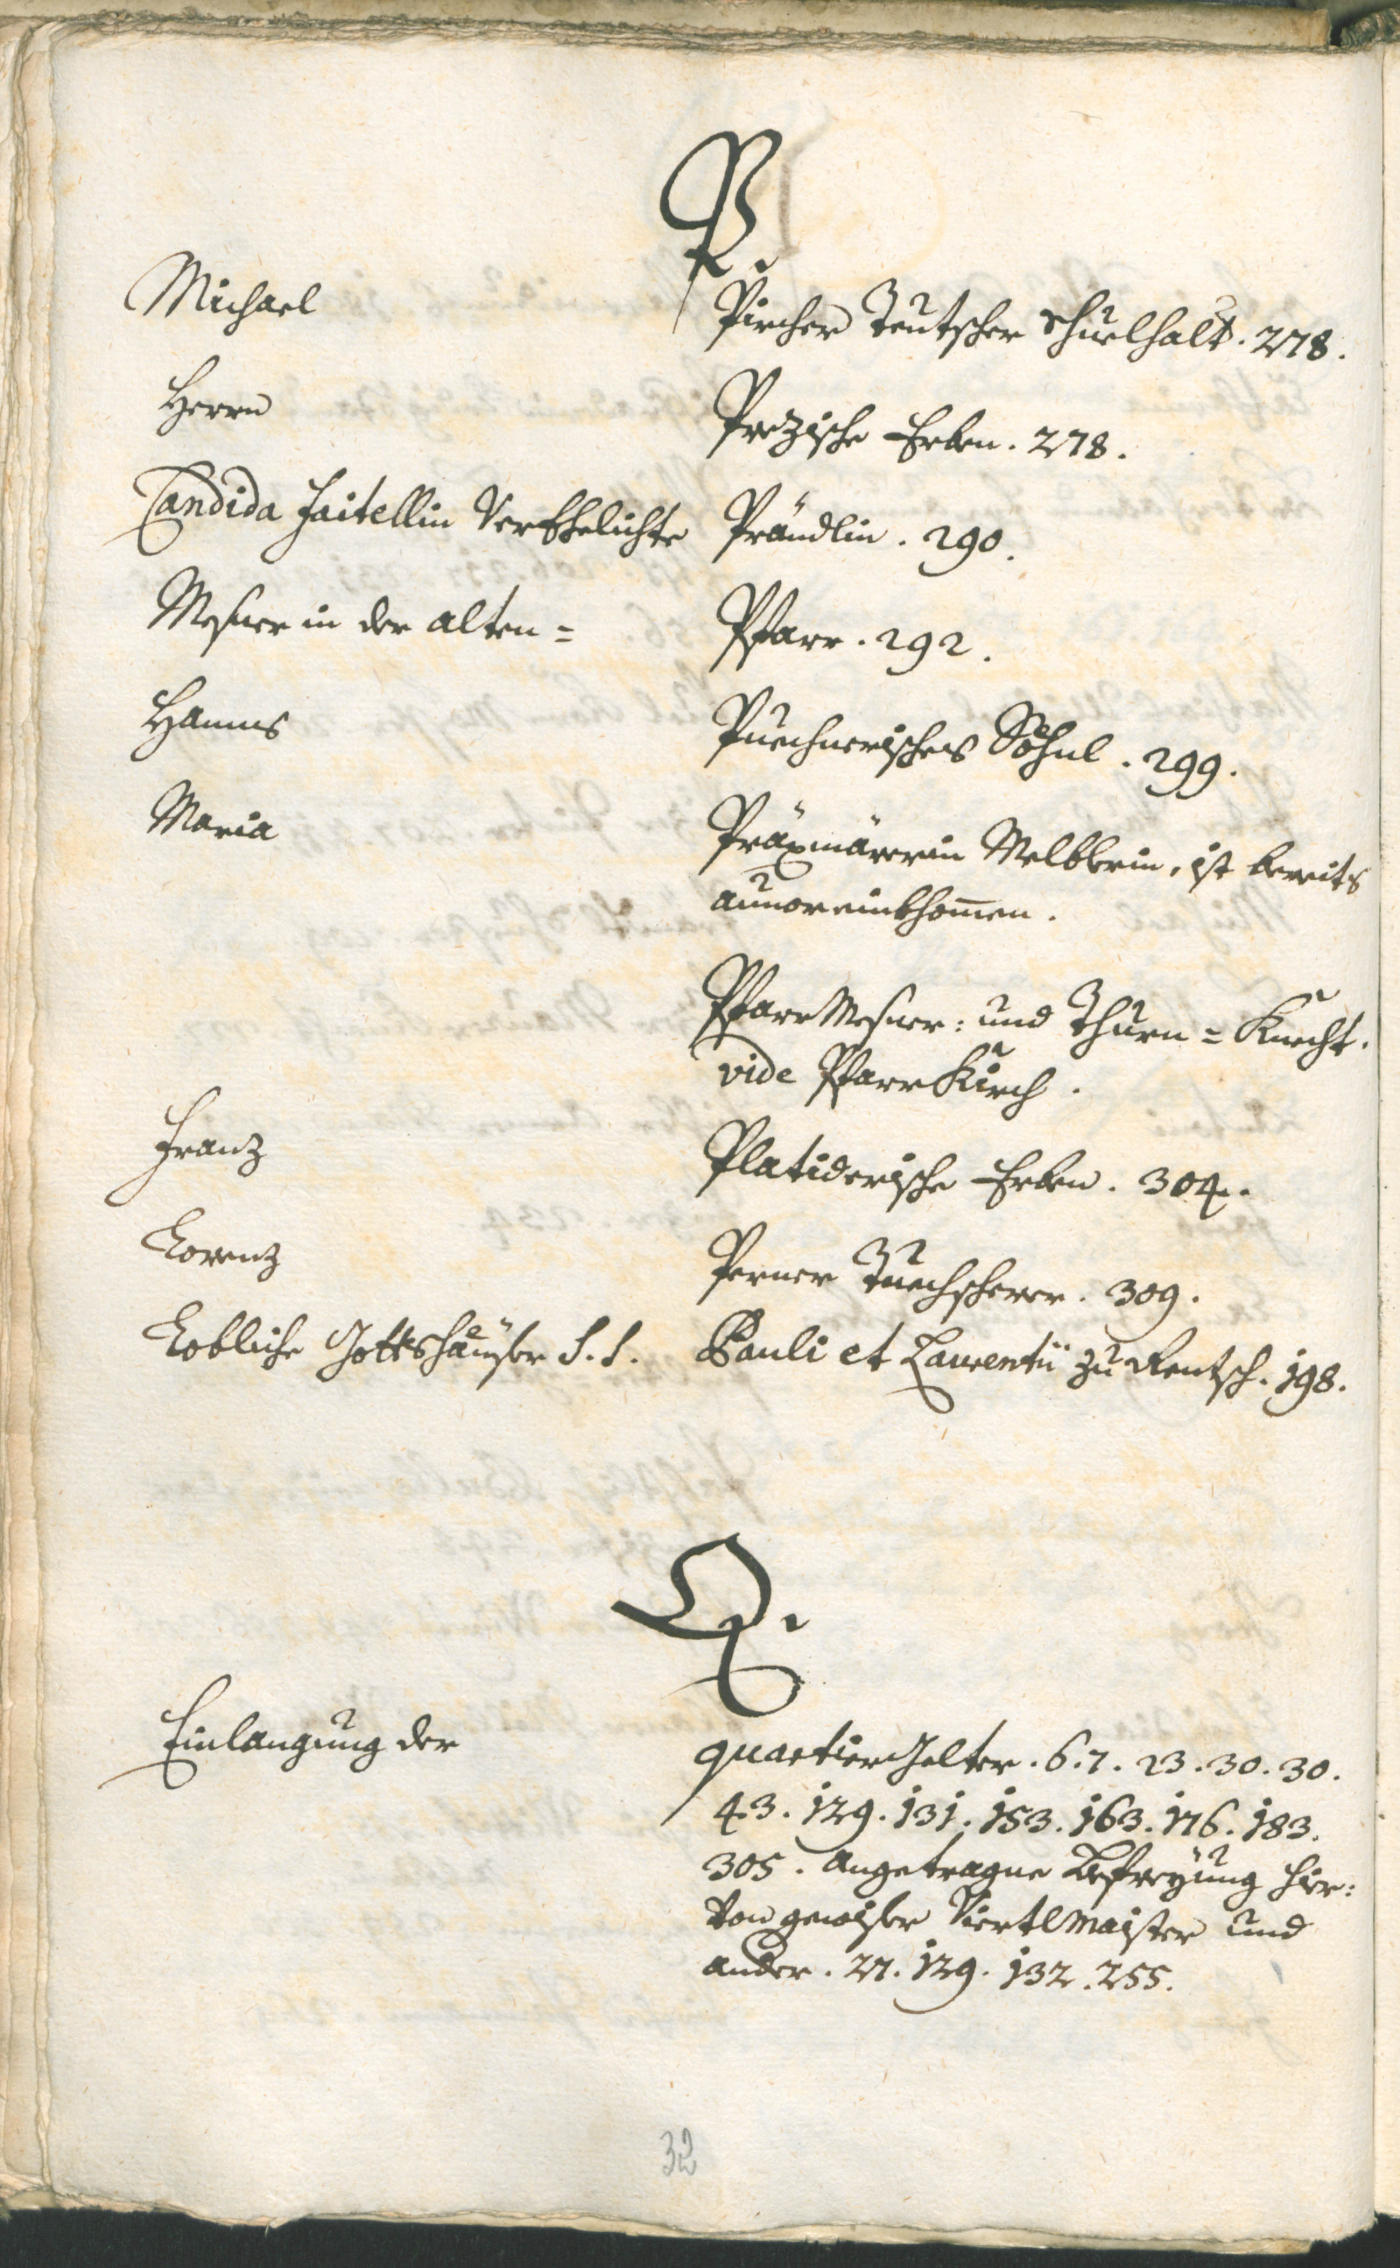 P.
Michael Pircher Teutscher Schuelhalt. 278.
Herrn Prezische Erben. 278.
Candida Faitellin Verehelichte Prändlin. 290.
Mesner in der alten= Pfarr. 292.
Hanns Puechnerisches Söhnl. 299.
Maria Präxmärerin Melblerin, ist bereits
anvor einkhomen.
PfarrMesner: und Thurn=Knecht.
vide PfarrKirch.
Franz Platiderische Erben. 304.
Lorenz Perner Tuechscherer. 309.
Lobliche Gottshäuser S. S. Pauli et Laurentii zu Rentsch. 198.
Q.
Einlangung der quartierGelter. 6. 7. 23. 30. 30.
43. 129. 131. 153. 163. 176. 183.
305. angetragne Befreyung hier:
von gewiser Viertlmaister und
ander. 27. 129. 132. 255.
32